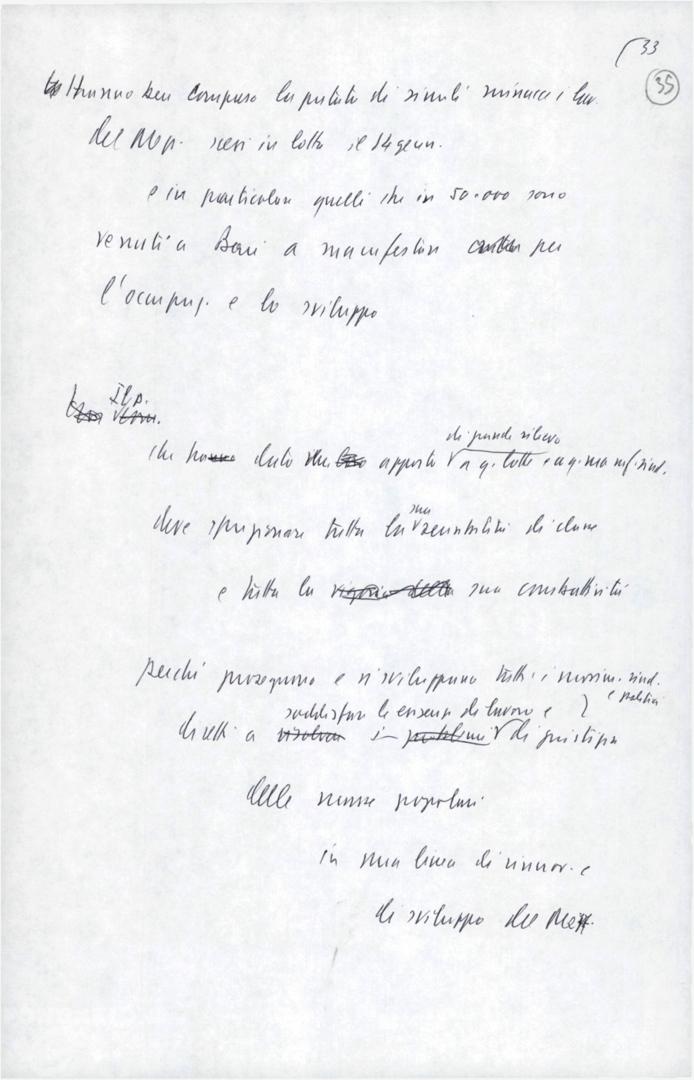 33
35
Hanno ben compreso la portata di simili minacce i lav.
del Mezz. scesi in lotta il 14 genn.
e in particolare quelli che in 50.000 sono
venuti a Bari a manifestare per
l'occupaz. e lo sviluppo
Il p.
di grande rilievo
che ha dato apporto a q. lotte e a q. manif. sind.
sua
deve sprigionare tutta la sensibilità di classe
e tutta la sua combattività
perché proseguano e si sviluppino tutti i movim. sind.
e politici
soddisfare le esigenze di lavoro e
diretti a di giustizia
delle masse popolari
in una linea di rinnov. e
di sviluppo del Mezz.